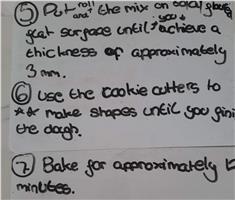 ⑤ Put roll and the mix on
flat surface until you achieve a
thickness of approximately
3mm.
⑥ Use the cookie cutters to
make shapes until you fini
the dough.
⑦ Bake for approximately
minutes.